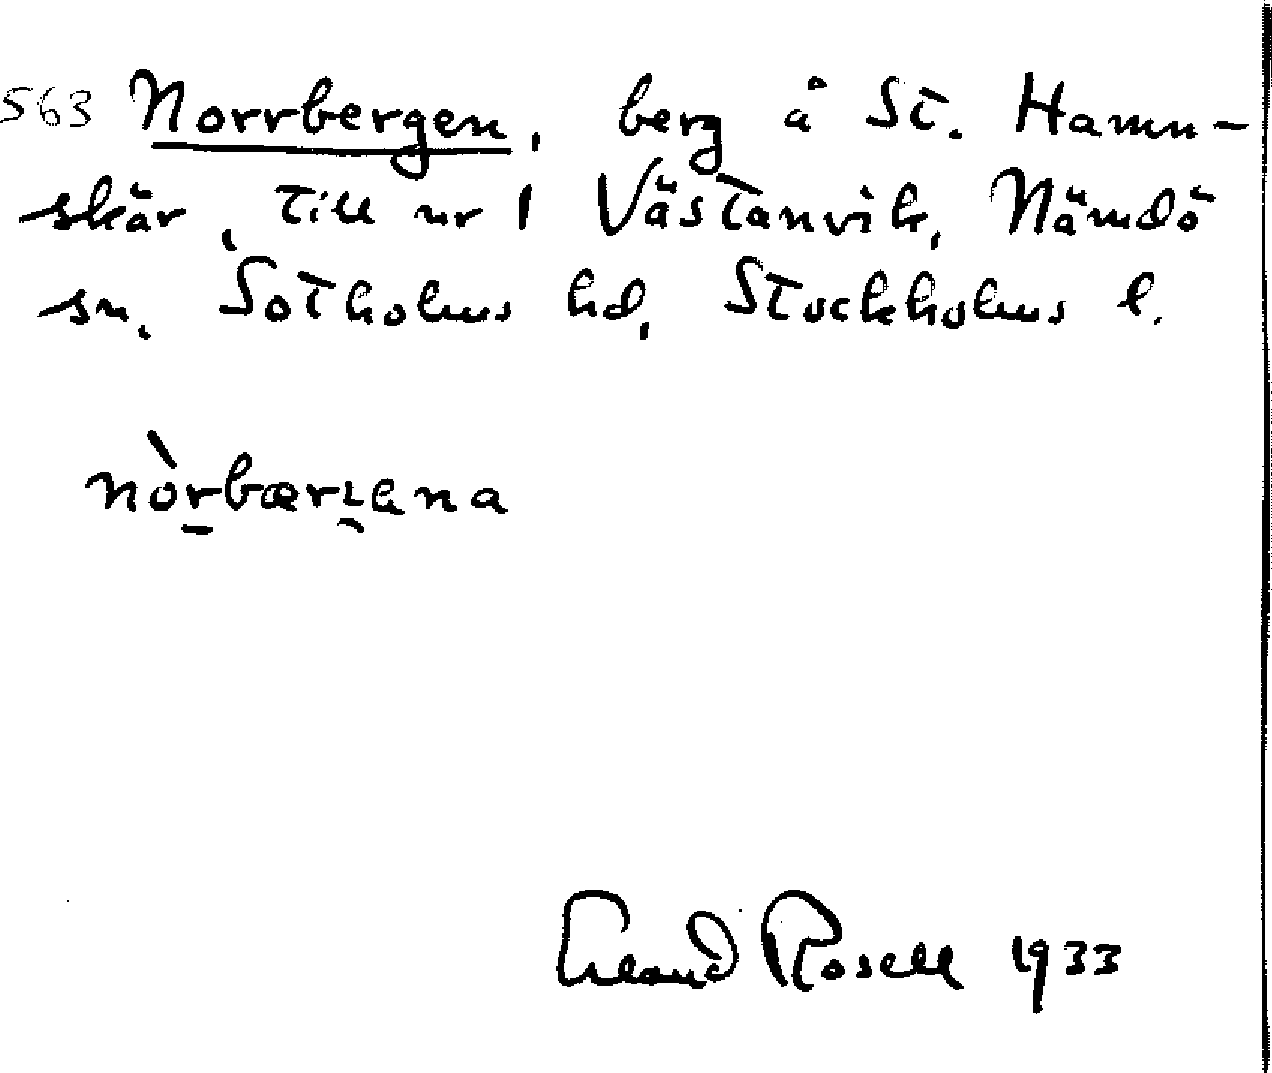 563 Norrbergen, berg å St. Hamn-
skär, till nr 1 Västanvik, Nämdö
sn, Sotholms hd, Stockholms l.
nòrbærɪ̯ena
Erland Rosell 1933